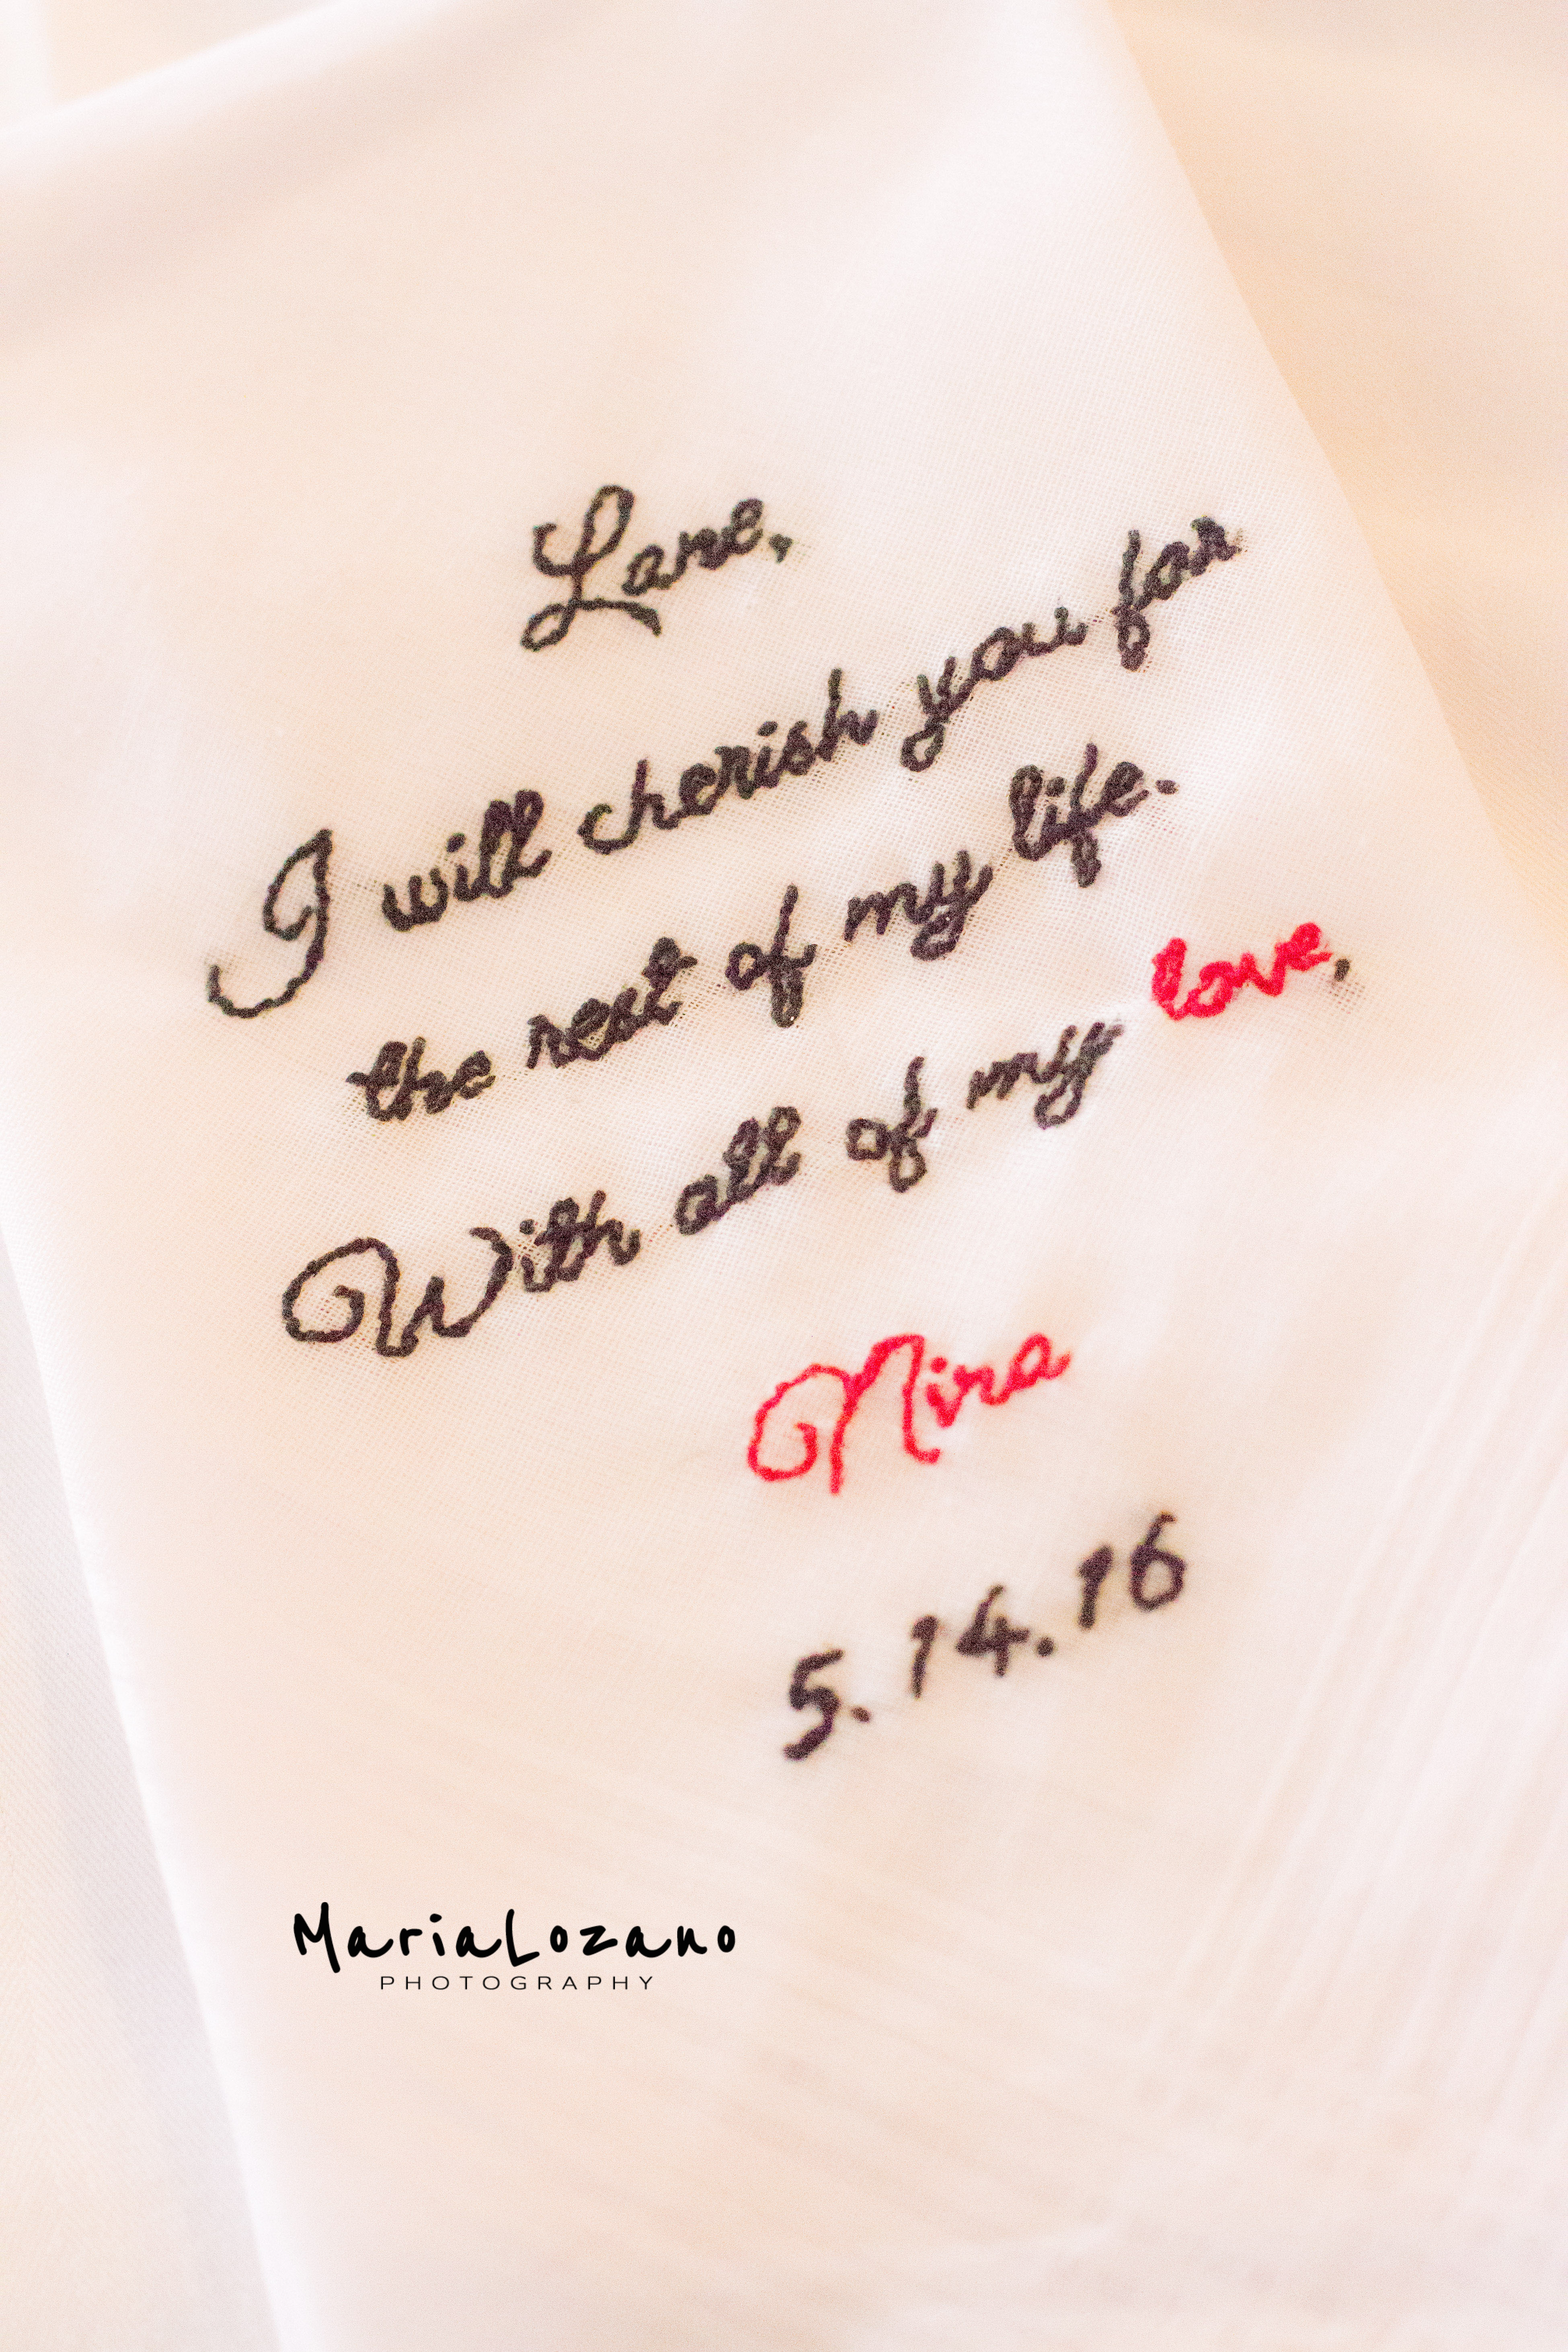 Lane,
I will cherish you for
the rest of my life.
With all of my love,
Nira
5.14.16
MariaLozano
PHOTOGRAPHY